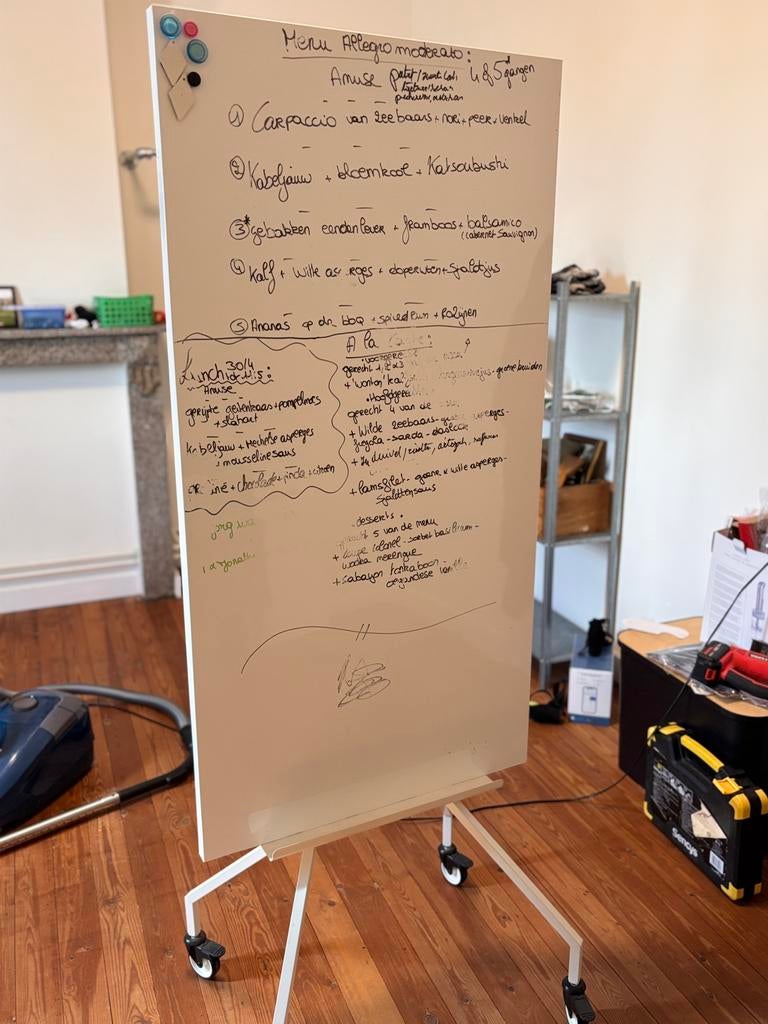 Menu Allegro moderato:
Amuse
4 of 5 gangen
① Carpaccio van zeebaars + nori + peer + venkel
② Kabeljauw + bloemkool + Katsoubushi
③* gebakken eendenlever + framboos + balsamico
(cabernet Sauvignon)
④ Kalf + witte asperges + doperwten + sjalotjus
⑤ Ananas op de bbq + spiced rum + Rozijnen
Lunch 30/4
Amuse
gerijpte geitenkaas + pompelmoes
+ stahout
kabeljauw + Mechelse asperges
+ mousselinesaus
+ chocolade + pinda + citroen
A la Carte:
voorgerecht
gerecht 1, 2 & 3
+ 'wonton' groene kruiden
Hoofdgerecht
gerecht 4 van de
+ Wilde zeebaars - asperges -
+ lamsfilet - groene & witte asperges -
Sjalottensaus
desserts:
gerecht 5 van de menu
+ coupe colonel - sorbet basilicum -
wodka meringue
+ Sabayon tonkaboon
Sencys